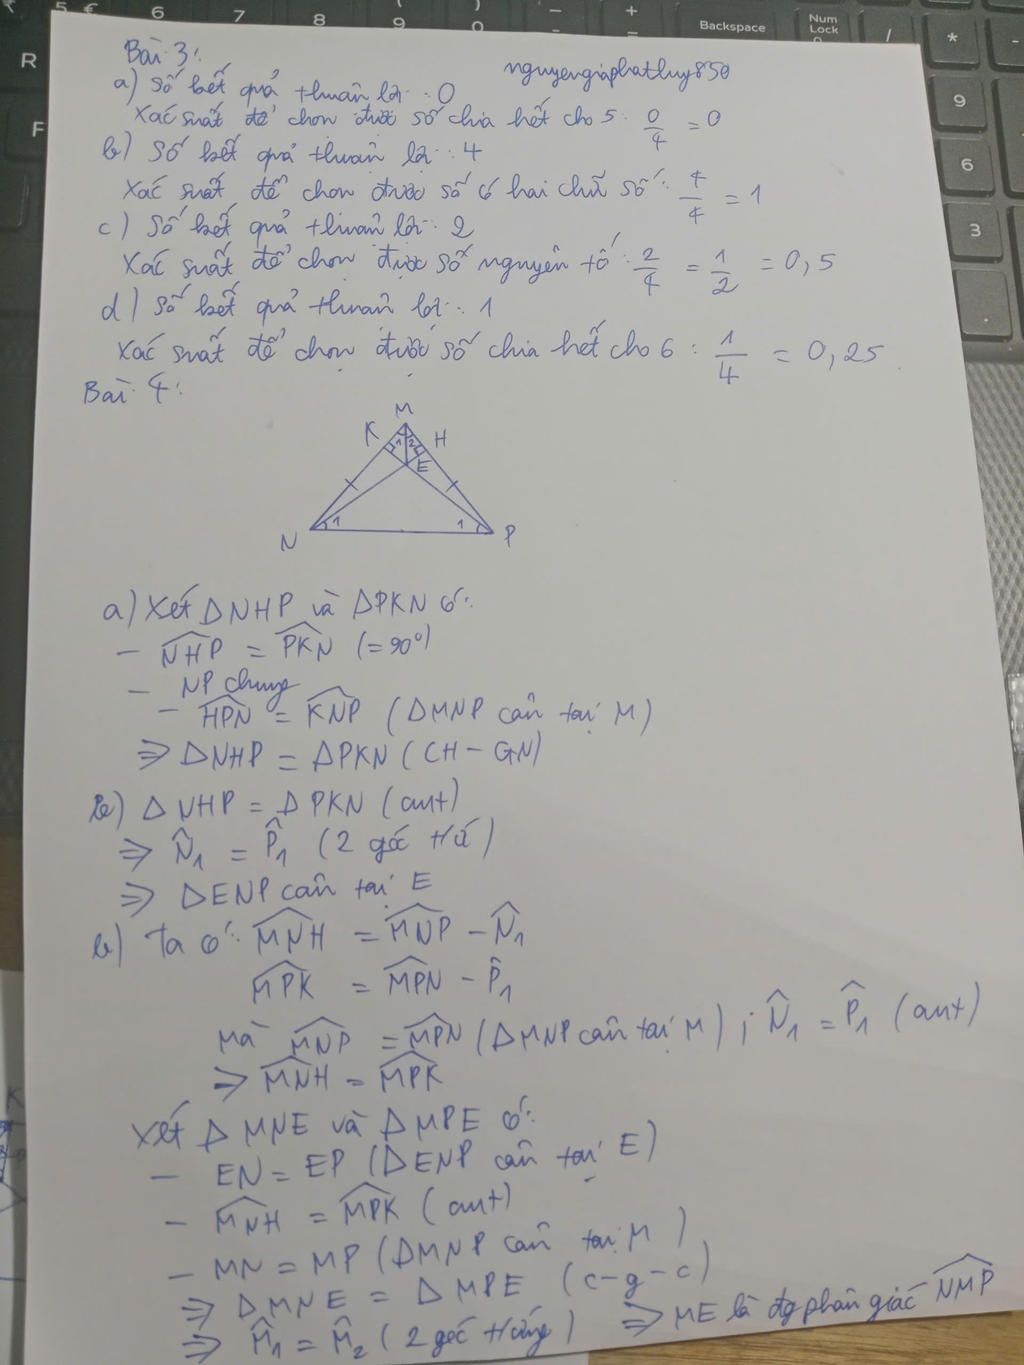 Bài 3:
nguyengiaphathuy850
a) Số kết quả thuận lợi : 0
Xác suất để chọn được số chia hết cho 5 : 0/4 = 0
b) Số kết quả thuận lợi : 4
Xác suất để chọn được số có hai chữ số : 4/4 = 1
c) Số kết quả thuận lợi : 2
Xác suất để chọn được số nguyên tố : 2/4 = 1/2 = 0,5
d) Số kết quả thuận lợi : 1
Xác suất để chọn được số chia hết cho 6 : 1/4 = 0,25
Bài 4:
M
K 1 2 H
E
N 1 1 P
a) Xét ΔNHP và ΔPKN có:
- \widehat{NHP} = \widehat{PKN} (=90°)
- NP chung
- \widehat{HPN} = \widehat{KNP} (ΔMNP cân tại M)
=> ΔNHP = ΔPKN (CH - GN)
b) ΔNHP = ΔPKN (cmt)
=> N̂1 = P̂1 (2 góc t/ứ)
=> ΔENP cân tại E
b) Ta có: \widehat{MNH} = \widehat{MNP} - N̂1
\widehat{MPK} = \widehat{MPN} - P̂1
Mà \widehat{MNP} = \widehat{MPN} (ΔMNP cân tại M) ; N̂1 = P̂1 (cmt)
=> \widehat{MNH} = \widehat{MPK}
Xét ΔMNE và ΔMPE có:
- EN = EP (ΔENP cân tại E)
- \widehat{MNH} = \widehat{MPK} (cmt)
- MN = MP (ΔMNP cân tại M)
=> ΔMNE = ΔMPE (c-g-c)
=> M̂1 = M̂2 (2 góc t/ứng) => ME là đg phân giác \widehat{NMP}